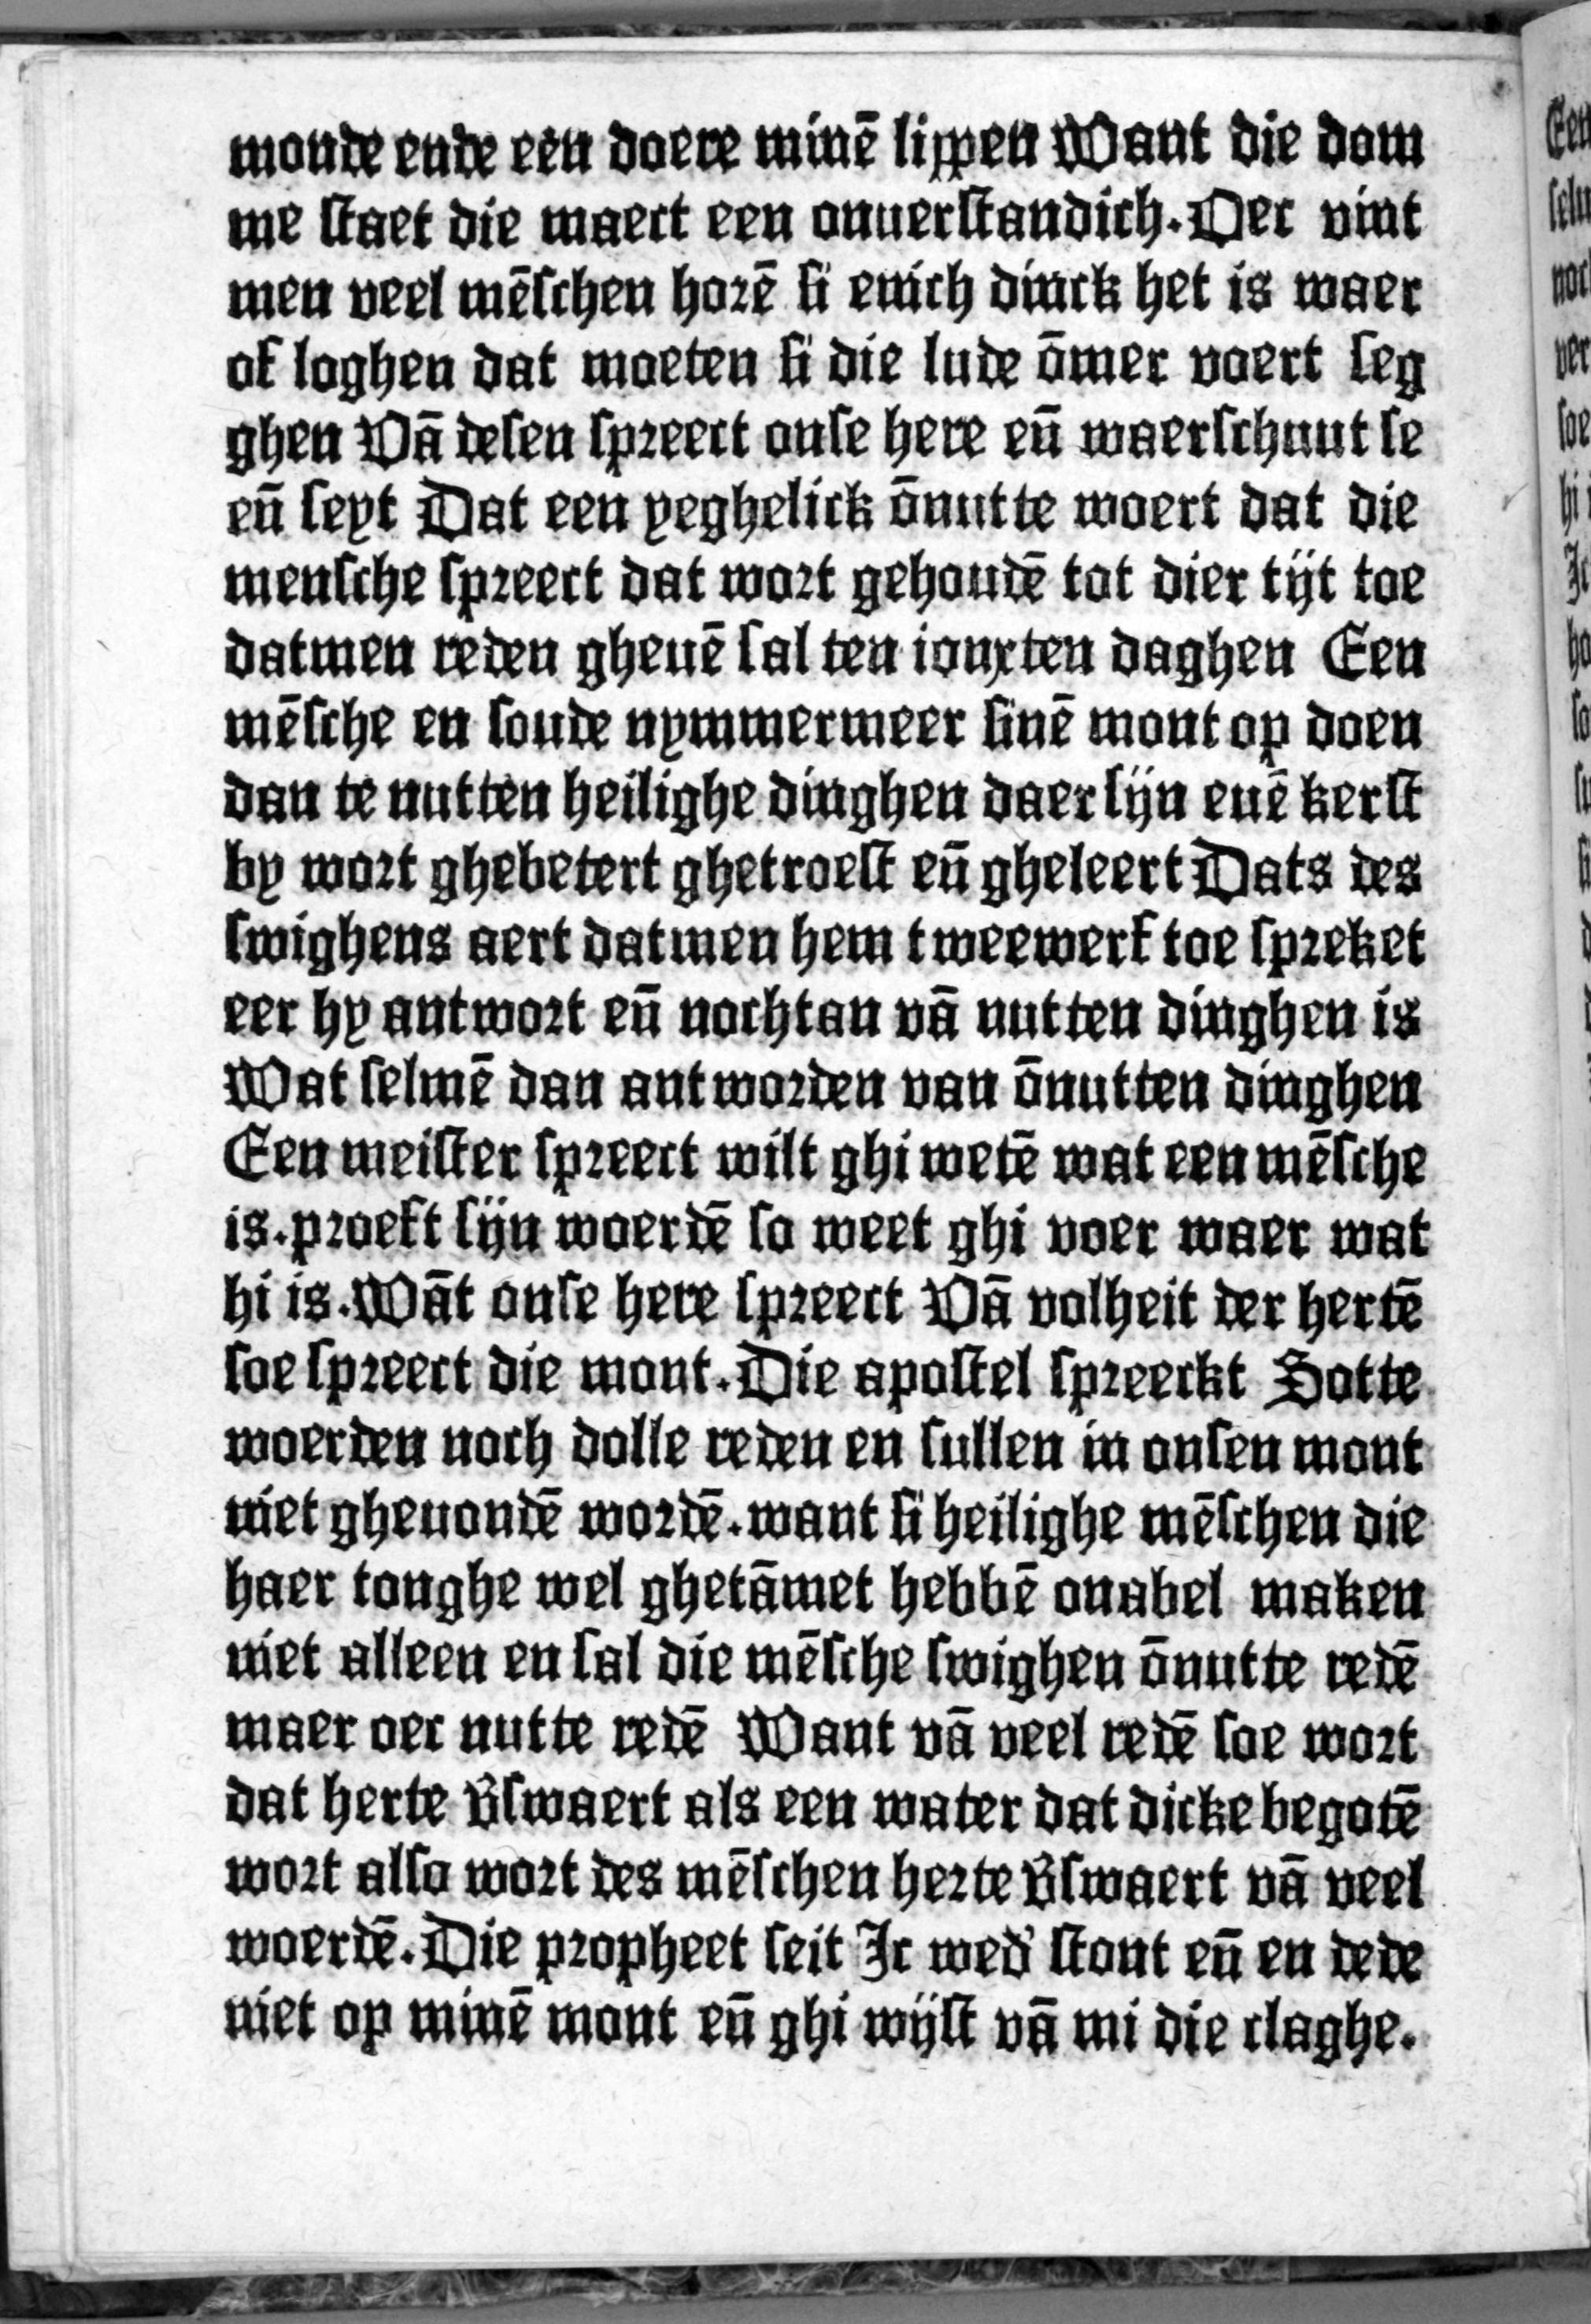 monde ende een doere minē lippen Want die dom
me staet die maect een onuerstandich. Oec vint
men veel mēschen horē si enich dinck het is waer
of loghen dat moeten si die lude ōmer voert seg
ghen Vā desen spreect onse here eñ waerschuut se
eñ seyt Dat een yeghelick ōnutte woert dat die
mensche spreect dat wort gehoudē tot dier tijt toe
datmen reden gheuē sal ten ionxten daghen Een
mēsche en soude nymmermeer sinē mont op doen
dan te nutten heilighe dinghen daer sijn euē kerst
by wort ghebetert ghetroest eñ gheleert Dats des
swighens aert datmen hem tweewerf toe spreket
eer hy antwort eñ nochtan vā nutten dinghen is
Wat selmē dan antworden van ōnutten dinghen
Een meister spreect wilt ghi wetē wat een mēsche
is. proeft sijn woerdē so weet ghi voer waer wat
hi is. Wāt onse here spreect Vā volheit der hertē
soe spreect die mont. Die apostel spreeckt Sotte
woerden noch dolle reden en sullen in onsen mont
niet gheuondē wordē. want si heilighe mēschen die
haer tonghe wel ghetāmet hebbē onabel maken
niet alleen en sal die mēsche swighen ōnutte redē
maer oec nutte redē Want vā veel redē soe wort
dat herte v̄swaert als een water dat dicke begotē
wort also wort des mēschen herte v̄swaert vā veel
woerdē. Die propheet seit Ic wed' stont eñ en dede
niet op minē mont eñ ghi wijst vā mi die claghe.